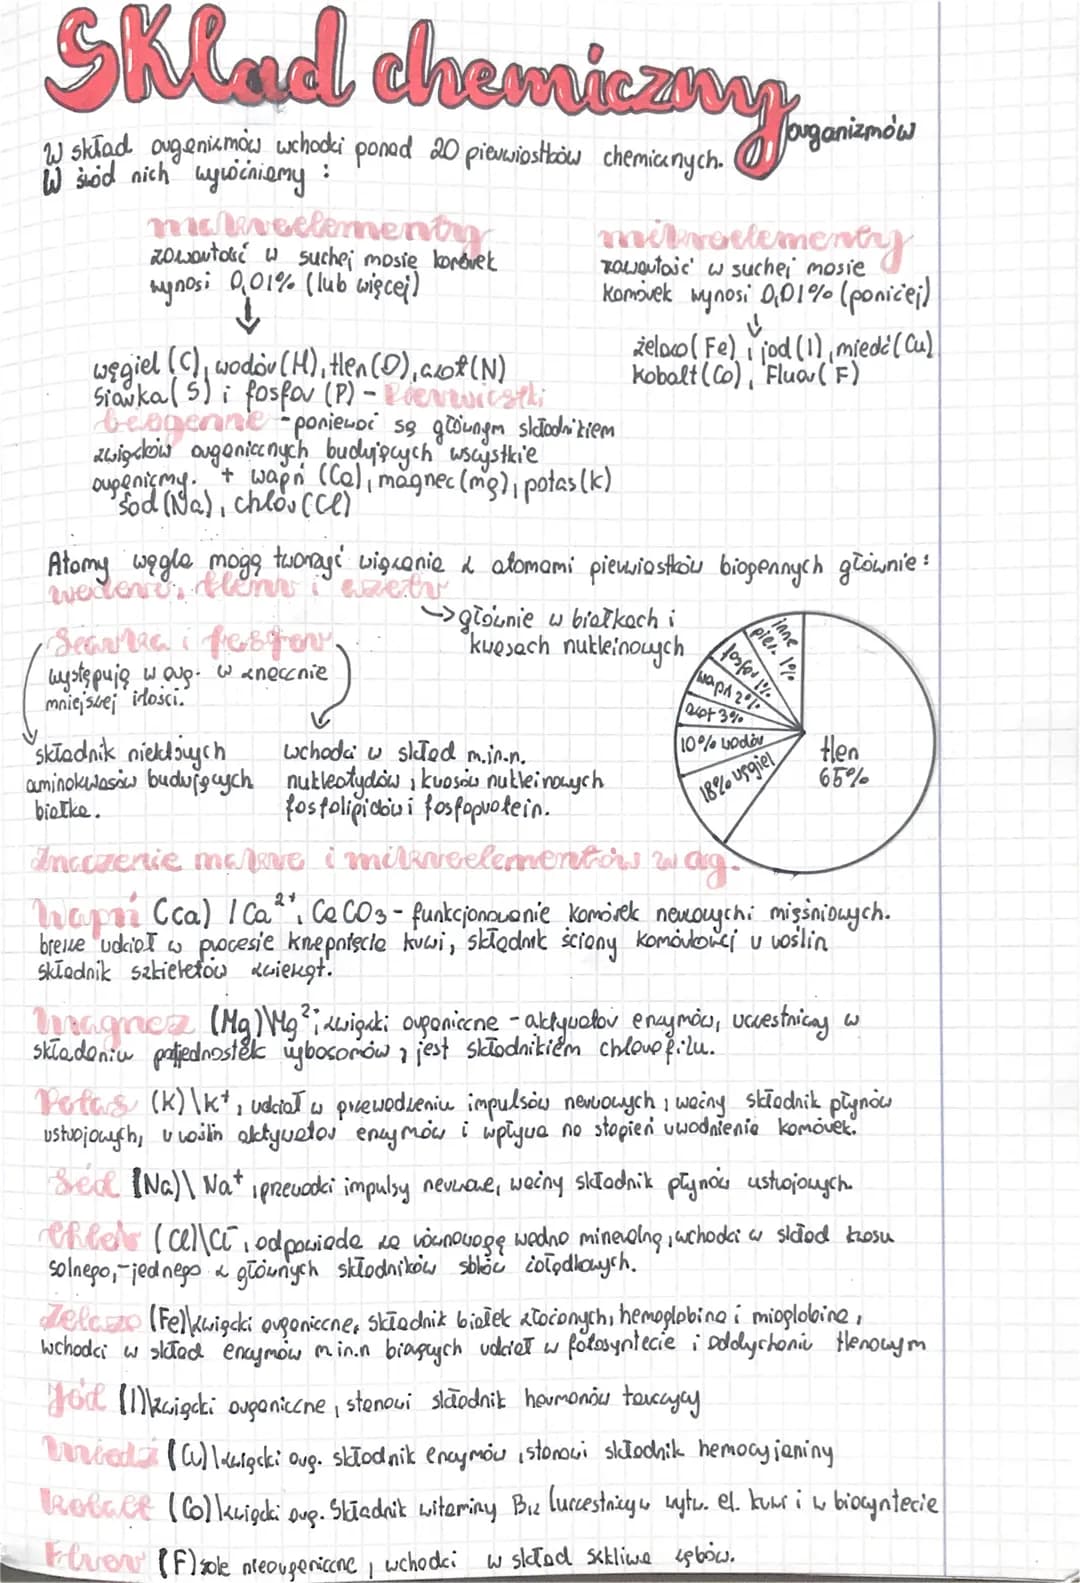 Skład chemiczny organizmów
W skład organizmów wchodzi ponad 20 pierwiostków chemicznych.
W śród nich wyróżniamy :
makroelementy
zawartość w suchej masie komórek
wynosi 0,01% (lub więcej)
węgiel (C), wodór (H), tlen (O), azot (N)
Siarka (S) i fosfor (P) - Pierwiastki
biogenne - ponieważ są głównym składnikiem
związków organicznych budujących wszystkie
organizmy. + wapń (Ca), magnez (mg), potas (k)
sod (Na), chlor (Cl)
mikroelementy
zawartość w suchej masie
komórek wynosi 0,01% (poniżej)
żelazo (Fe), jod (I), miedź (Cu)
Kobalt (Co), Fluor (F)
Atomy węgla mogą tworzyć wiązania z atomami pierwiastków biogennych głównie:
wodoru, tlenu i azotu
→ głównie w białkach i
kwasach nukleinowych
Siarka i fosfor
występują w org. w znacznie
mniejszej ilości.
składnik niektórych
aminokwasów budujących
białka.
wchodzi w skład m.in.n.
nukleotydów, kwasów nukleinowych
fosfolipidów i fosfoprotein.
inne
pier. 1%
fosfor 1%
wapń 2%
azot 3%
10% wodór
18% węgiel
tlen
65%
Znaczenie makro i mikroelementów w og.
Wapń (ca) / Ca²⁺, CaCO3 - funkcjonowanie komórek nerwowych i mięśniowych.
bierze udział w procesie krzepnięcia krwi, składnik ściany komórkowej u roślin
składnik szkieletów zwierząt.
Magnez (Mg)\Mg²; związki organiczne - aktywator enzymów, uczestniczy w
składaniu podjednostek rybosomów, jest składnikiem chlorofilu.
Potas (k)\k⁺, udział w przewodzeniu impulsów nerwowych, ważny składnik płynów
ustrojowych, u roślin aktywator enzymów i wpływa na stopień uwodnienia komórek.
Sód (Na)\Na⁺, przewodzi impulsy nerwowe, ważny składnik płynów ustrojowych.
Chlor (Cl)\Cl⁻, odpowiada za równowagę wodno mineralną, wchodzi w skład kwasu
solnego,-jednego z głównych składników soków żołądkowych.
Żelazo (Fe)\związki organiczne, składnik białek złożonych, hemoglobina i mioglobina,
wchodzi w skład enzymów m.in.n biorących udział w fotosyntezie i oddychaniu tlenowym
Jod (I)\związki organiczne, stanowi składnik hormonów tarczycy
Miedź (Cu)\związki org. składnik enzymów, stanowi składnik hemocyjaniny
Kobalt (Co)\związki org. Składnik witaminy B12 (uczestniczy w wytw. el. krwi i w biosyntezie
Fluor (F)sole nieorganiczne, wchodzi w skład szkliwa zębów.